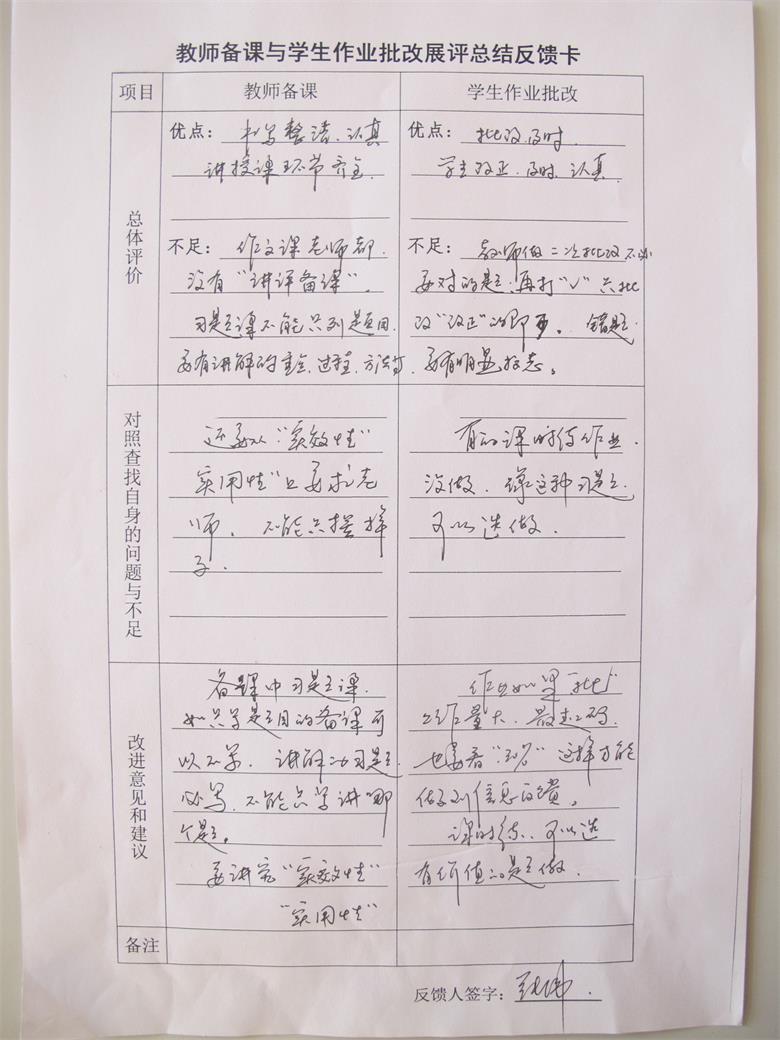 教师备课与学生作业批改展评总结反馈卡
项目
教师备课
学生作业批改
总体评价
优点：书写整洁、认真
讲授课环节齐全.
不足：作文课老师都
没有“讲评备课”.
习题课不能只列题目.
要有讲解的 过程、方法
优点：批改及时.
学生改正、及时、认真.
不足：教师做二次批改不
要对的题再打“√”只批
改“改正”的即可。错题
要有明显标志。
对照查找自身的问题与不足
还要从“实效性”
实用性”上要求老
师. 不能只摆样
子.
有的课时待作业.
没做. 这种习题.
可以选做.
改进意见和建议
备课中习题课.
如只写题目的备课可
以不写. 讲解的习题.
必写. 不能只写讲哪
个题。
要讲究“实效性”
“实用性”
作业如果“批”
工作量大、最起码.
也要看“ ”这样才能
做到信息反馈。
课时练、可以选
有价值的题做.
备注
反馈人签字：